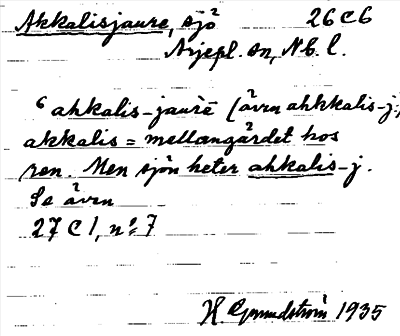 Akkalisjaure, sjö 26 C 6
Arjepl. sn, Nb. l.
6 ahkalis-jaurē (även ahkkalis-j.)
akkalis = mellangärdet hos
ren. Men sjön heter ahkalis-j.
Se även
27 C 1, nº 7
H Grundström 1935